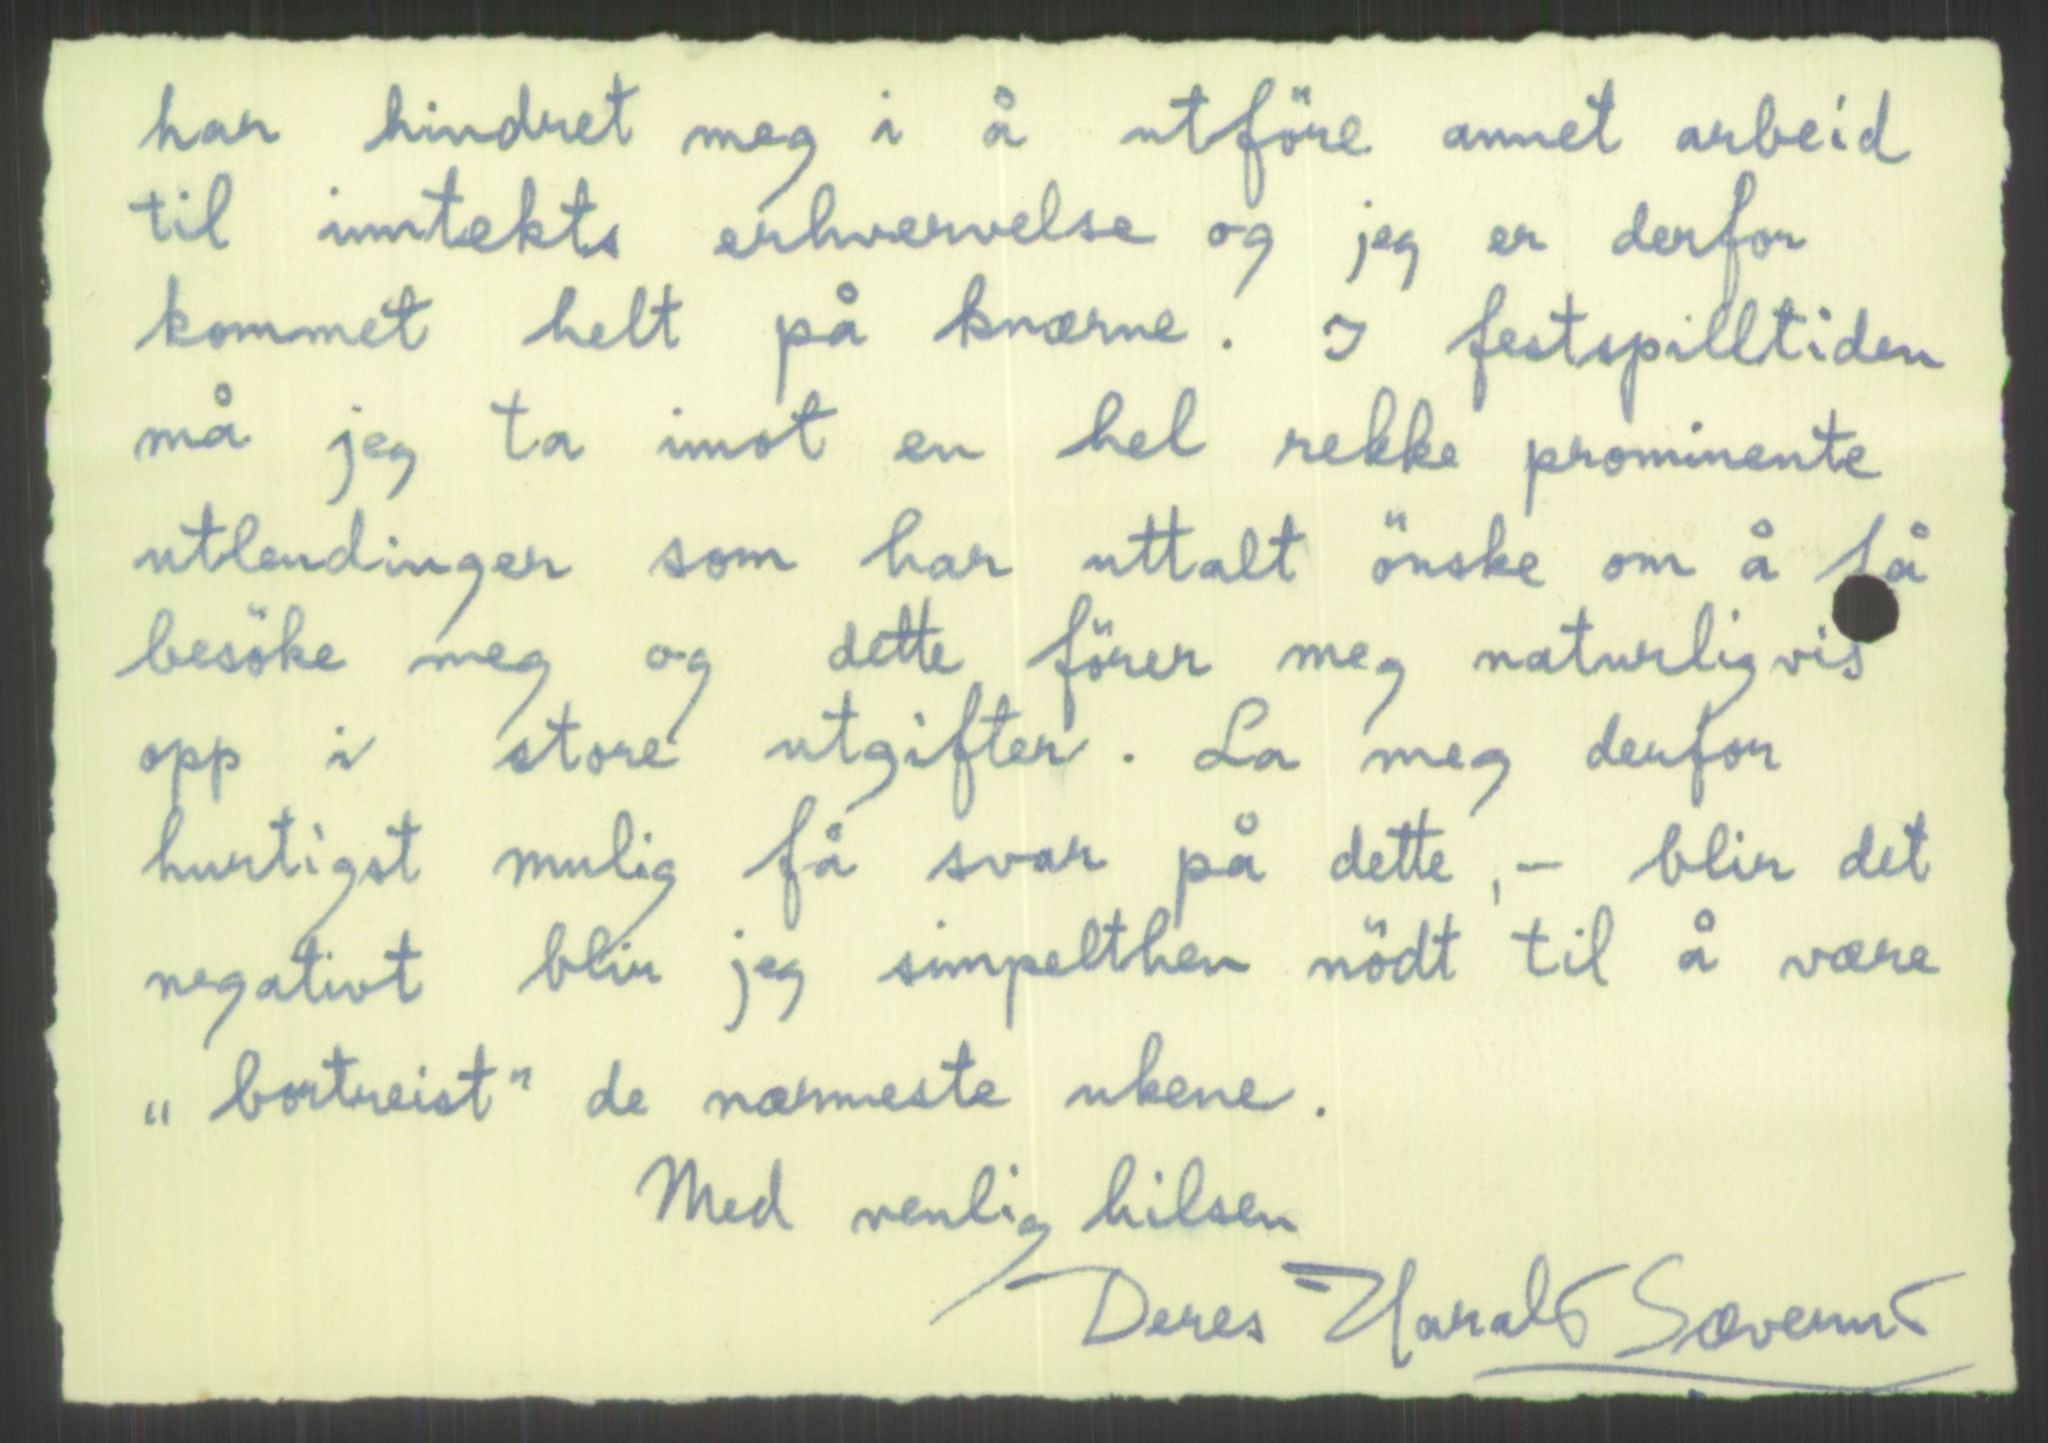 har hindret meg i å utföre annet arbeid
til inntekts erhvervelse og jeg er derfor
kommet helt på knærne. I festspilltiden
må jeg ta imot en hel rekke prominente
utlendinger som har uttalt önske om å få
besöke meg og dette förer meg naturligvis
opp i store utgifter. La meg derfor
hurtigst mulig få svar på dette, - blir det
negativt blir jeg simpelthen nödt til å være
„bortreist" de nærmeste ukene.
Med venlig hilsen
Deres Harald Sæverud